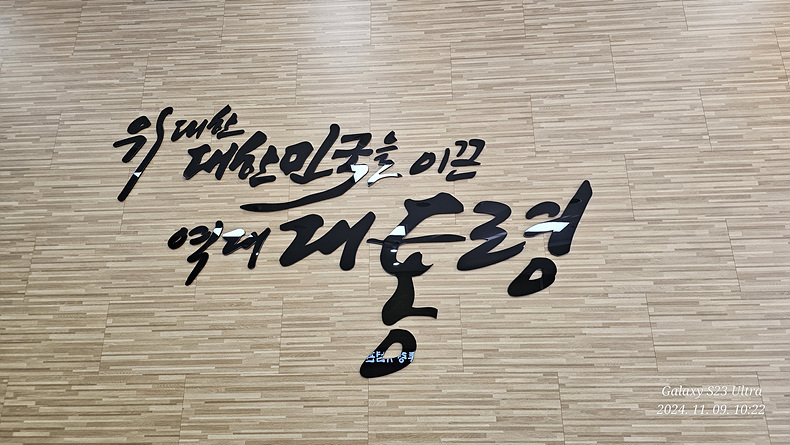 위대한
대한민국을 이끈
역대 대통령
Galaxy S23 Ultra
2024. 11. 09. 10:22